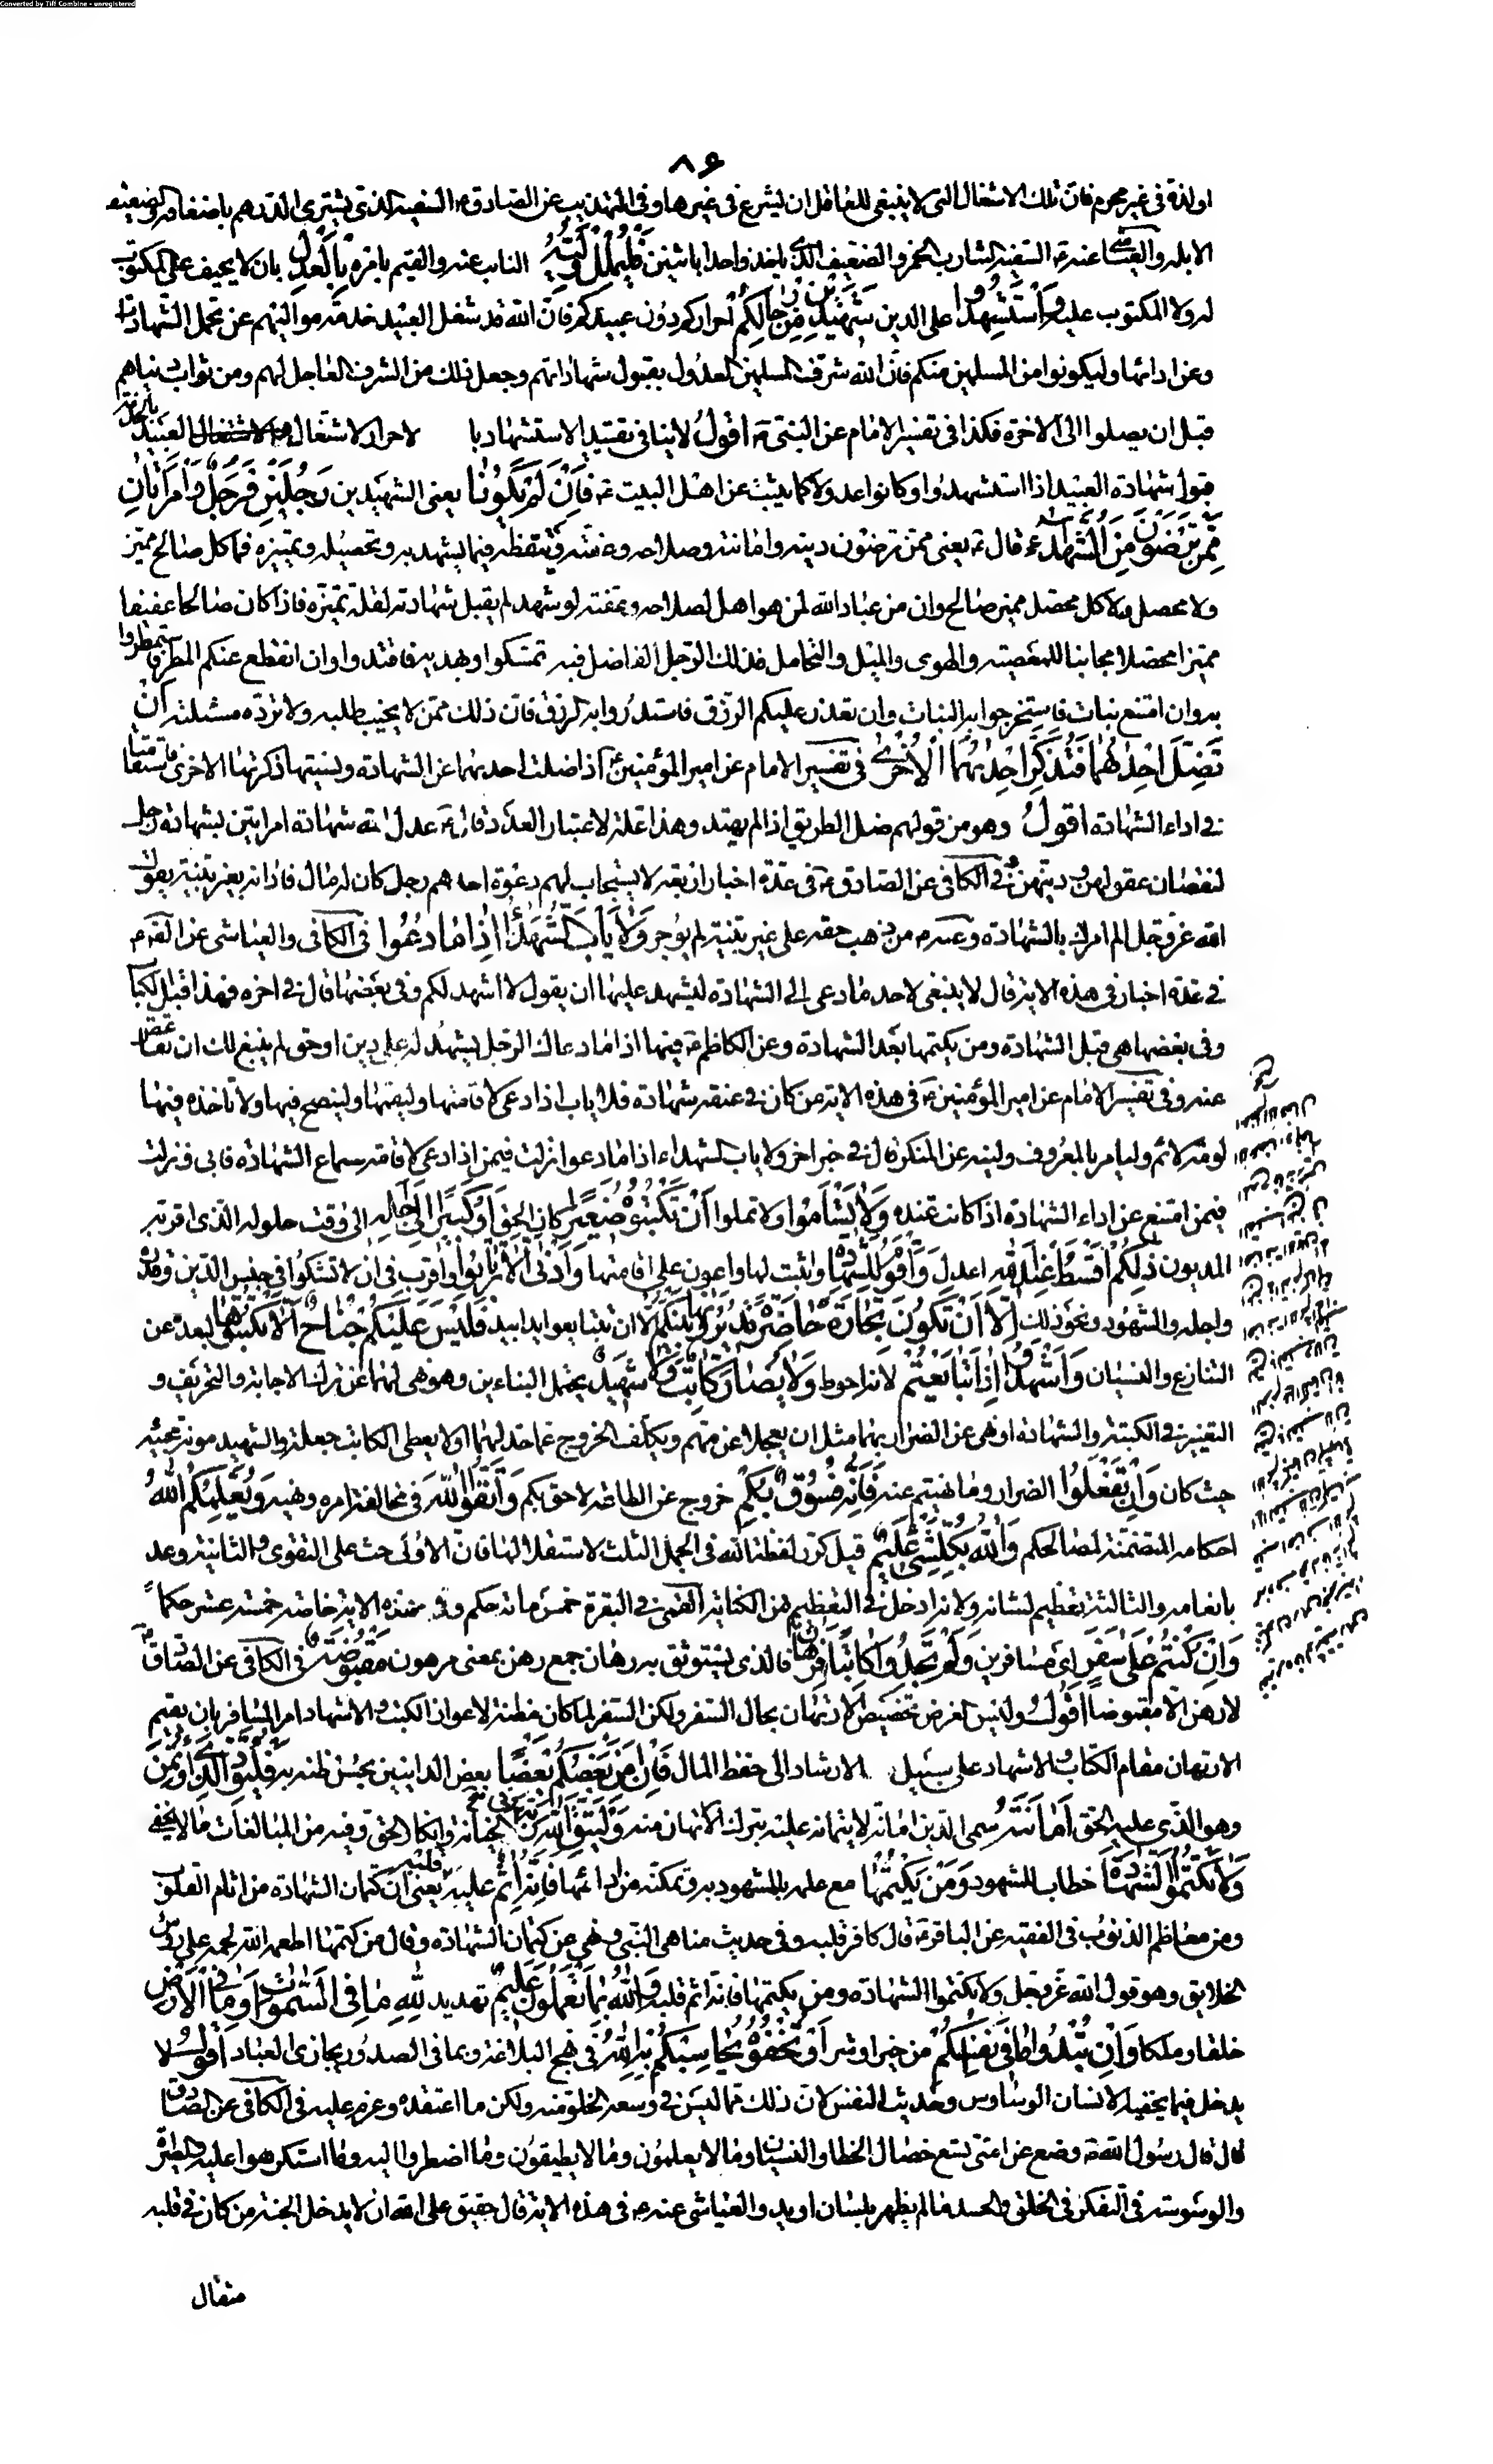 Converted by Tiff Combine - unregistered
٨٦
او لذة فى غير محرم فان تلك الاشغال التى لا ينبغى للعاقل ان يشرع فى غيرها وفى التهذيب عن الصادق ع السفيه الذى يشترى الدرهم باضعافه والضعيف
الابله والعياشى عنه ع السفيه الشارب الخمر والضعيف الذى ياخذ واحدا باثنين فَلْيُمْلِلْ وَلِيُّهُ النايب عنه والقيم بامره بِالْعَدْلِ بان لا يحيف على المكتوب
له ولا المكتوب عليه وَاسْتَشْهِدُوا على الدين شَهِيدَيْنِ مِنْ رِجالِكُمْ احراركم دون عبيدكم فان الله قد شغل العبيد بخدمة مواليهم عن تحمل الشهادات
وعن ادائها وليكونوا من المسلمين منكم فان الله شرف المسلمين العدول بقبول شهاداتهم وجعل ذلك من الشرف العاجل لهم ومن ثواب دنياهم
قبل ان يصلوا الى الاخرة فكذا فى تفسير الامام عن النبى ص اقول لا ينافى تقييد الاستشهاد با لاحرار لاشتغال العبيد بالخدمة
قبول شهادة العبيد اذا استشهدوا وكانوا عدولا كما يثبت عن اهل البيت ع فَاِنْ لَمْ يَكُونا يعنى الشهيدين رَجُلَيْنِ فَرَجُلٌ وَامْرَاَتانِ
مِمَّنْ تَرْضَوْنَ مِنَ الشُّهَداءِ قال ع يعنى ممن ترضون دينه وامانته وصلاحه وعفته وتيقظه فيما يشهد به وتحصيله وتمييزه فما كل صالح مميز
ولا محصل ولا كل محصل مميز صالح وان من عباد الله لمن هو اهل لصلاحه وعفته لو شهد لم يقبل شهادته لقلة تميزه فاذا كان صالحا عفيفا
مميزا محصلا مجانبا للمعصية والهوى والميل والتحامل فذلك الرجل الفاضل فبه تمسكوا وبهديه فاقتدوا وان انقطع عنكم المطر فاستمطروا
به وان امتنع نبات فاستخرجوا به النبات وان تعذر عليكم الرزق فاستدروا به الرزق فان ذلك ممن لا يخيب طلبه ولا ترد مسئلته اَنْ
تَضِلَّ اِحْديهُما فَتُذَكِّرَ اِحْديهُمَا الْاُخْرى فى تفسير الامام عن امير المؤمنين ع اذا ضلت احديهما عن الشهادة ونسيتها ذكرتها الاخرى فاستقامتا
فى اداء الشهادة اقول وهو من قولهم ضل الطريق اذا لم يهتد وهذا علة لاعتبار العدد قال ع عدل الله شهادة امراتين بشهادة رجل
لنقصان عقولهن ودينهن وفى الكافى عن الصادق ع فى عدة اخبار اربعة لا يستجاب لهم دعوة احدهم رجل كان له مال فادانه بغير بينة يقول
الله عز وجل الم امرك بالشهادة وعنه ع من ذهب حقه على غير بينة لم يوجر وَلا يَاْبَ الشُّهَداءُ اِذا ما دُعُوا فى الكافى والعياشى عن الصادق ع
فى عدة اخبار فى هذه الاية قال لا ينبغى لاحد ما دعى الى الشهادة ليشهد عليها ان يقول لا اشهد لكم وفى بعضها قال فى اخره فهذا قبل الكتاب
وفى بعضها هى قبل الشهادة ومن يكتمها بعد الشهادة وعن الكاظم ع فيها اذا ما دعاك الرجل ليشهد له على دين او حق لم ينبغ لك ان تقاعس
عنه وفى تفسير الامام عن امير المؤمنين ع فى هذه الاية من كان فى عنقه شهادة فلا ياب اذا دعى لاقامتها وليقمها ولينصح فيها ولا تاخذه فيها
لومة لائم وليامر بالمعروف ولينه عن المنكر قال فى خبر اخر ولا ياب الشهداء اذا ما دعوا نزلت فيمن اذا دعى لاقامة سماع الشهادة فابى ونزلت
فيمن امتنع عن اداء الشهادة اذا كانت عنده وَلا تَسْاَمُوا ولا تملوا اَنْ تَكْتُبُوهُ صَغِيرًا كان الحق اَوْ كَبِيرًا اِلى اَجَلِهِ الى وقت حلوله الذى اقر به
المديون ذلِكُمْ اَقْسَطُ عِنْدَ اللهِ اعدل وَاَقْوَمُ لِلشَّهادَةِ واثبت لها واعون على اقامتها وَاَدْنى اَلّا تَرْتابُوا واقرب فى ان لا تشكوا فى جنس الدين وقدره
واجله والشهود ونحو ذلك اِلّا اَنْ تَكُونَ تِجارَةً حاضِرَةً تُدِيرُونَها بَيْنَكُمْ الا ان تتبايعوا يدا بيد فَلَيْسَ عَلَيْكُمْ جُناحٌ اَلّا تَكْتُبُوها لبعده عن
التنازع والنسيان وَاَشْهِدُوا اِذا تَبايَعْتُمْ لانه احوط وَلا يُضارَّ كاتِبٌ وَلا شَهِيدٌ يحتمل البنائين وهو نهى لهما عن ترك الاجابة والتحريف و
التغيير فى الكتبة والشهادة او نهى عن الضرار بهما مثل ان يعجلا عن مهم ويكلف الخروج عما حد لهما او لا يعطى الكاتب جعله والشهيد مونة مجيئه
حيث كان وَاِنْ تَفْعَلُوا الضرار وما نهيتم عنه فَاِنَّهُ فُسُوقٌ بِكُمْ خروج عن الطاعة لاحق بكم وَاتَّقُوا اللهَ فى مخالفة امره ونهيه وَيُعَلِّمُكُمُ اللهُ
احكامه المتضمنة لمصالحكم وَاللهُ بِكُلِّ شَىْءٍ عَلِيمٌ قيل كرر لفظة الله فى الجمل الثلث لاستقلالها فان الاولى حث على التقوى والثانية وعد
بانعامه والثالثة تعظيم لشانه ولانه ادخل فى التعظيم من الكناية القمى فى البقرة خمس مائة حكم وفى هذه الاية خاصة خمسة عشر حكما
وَاِنْ كُنْتُمْ عَلى سَفَرٍ اى مسافرين وَلَمْ تَجِدُوا كاتِبًا فَرِهانٌ فالذى يستوثق به رهان جمع رهن بمعنى مرهون مَقْبُوضَةٌ فى الكافى عن الصادق ع
لا رهن الا مقبوضا اقول وليس الغرض تخصيص الارتهان بحال السفر ولكن السفر لما كان مظنة لاعواز الكتب والاشهاد امر المسافر بان يقيم
الارتهان مقام الكتاب والاشهاد على سبيل الارشاد الى حفظ المال فَاِنْ اَمِنَ بَعْضُكُمْ بَعْضًا بعض الدائنين بحسن ظنه به فَلْيُؤَدِّ الَّذِى اؤْتُمِنَ
وهو الذى عليه الحق اَمانَتَهُ سمى الدين امانة لايتمانه عليه بترك الارتهان منه وَلْيَتَّقِ اللهَ رَبَّهُ فى الخيانة وانكار الحق وفيه من المبالغات ما لا يخفى
وَلا تَكْتُمُوا الشَّهادَةَ خطاب للشهود وَمَنْ يَكْتُمْها مع علمه بالمشهود به وتمكنه من ادائها فَاِنَّهُ آثِمٌ قَلْبُهُ يعنى ان كتمان الشهادة من اثام القلوب
ومن معاظم الذنوب فى الفقيه عن الباقر ع قال كافر قلبه وفى حديث مناهى النبى ص نهى عن كتمان الشهادة وقال من كتمها اطعمه الله لحمه على رؤس
الخلايق وهو قول الله عز وجل ولا تكتموا الشهادة ومن يكتمها فانه اثم قلبه وَاللهُ بِما تَعْمَلُونَ عَلِيمٌ تهديد لِلّهِ ما فِى السَّمواتِ وَما فِى الْاَرْضِ
خلقا وملكا وَاِنْ تُبْدُوا ما فِى اَنْفُسِكُمْ من خير او شر اَوْ تُخْفُوهُ يُحاسِبْكُمْ بِهِ اللهُ فى نهج البلاغة وبما فى الصدور يجازى العباد اقول لا
يدخل فيما يخفيه الانسان الوساوس وحديث النفس لان ذلك مما ليس فى وسعه الخلو منه ولكن ما اعتقده وعزم عليه فى الكافى عن الصادق
قال قال رسول الله ص وضع عن امتى تسع خصال الخطا والنسيان وما لا يعلمون وما لا يطيقون وما اضطروا اليه وما استكرهوا عليه والطيرة
والوسوسة فى التفكر فى الخلق والحسد ما لم يظهر بلسان او يد والعياشى عنه ع فى هذه الاية قال حقيق على الله ان لا يدخل الجنة من كان فى قلبه
مثقال